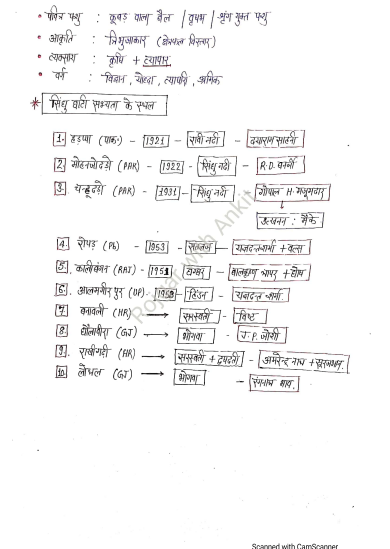 • पवित्र पशु : कूबड़ वाला बैल / वृषभ / श्रृंग युक्त पशु
• आकृति : त्रिभुजाकार (क्षेत्रफल विस्तार)
• व्यवसाय : कृषि + व्यापार
• वर्ग : विद्वान, योद्धा, व्यापारि, श्रमिक
* सिंधु घाटी सभ्यता के स्थल
1. हड़प्पा (पाक.) - 1921 - रावी नदी - दयाराम साहनी
2. मोहनजोदड़ो (PAK) - 1922 - सिंधु नदी - R.D. बनर्जी
3. चन्हूदड़ो (PAK) - 1931 - सिंधु नदी गोपाल H. मजूमदार
↓
उत्खनन : मैके
4. रोपड़ (Pb) - 1953 - सतलज - यज्ञदत्त शर्मा +
5. कालीबंगन (RAJ) - 1951 घग्घर - बालकृष्ण थापर + घोष
6. आलमगीरपुर (UP) - 1958 हिंडन - यज्ञदत्त शर्मा
7. बनावली (HR) → सरस्वती - विष्ट
8. धौलावीरा (GJ) → भोगवा - J.P. जोशी
9. राखीगढ़ी (HR) → सरस्वती + दृषद्वती - अमरेन्द्र नाथ + सूरजभान
10. लोथल (GJ) → भोगवा - रंगनाथ राव
Rojgar with Ankit
Scanned with CamScanner